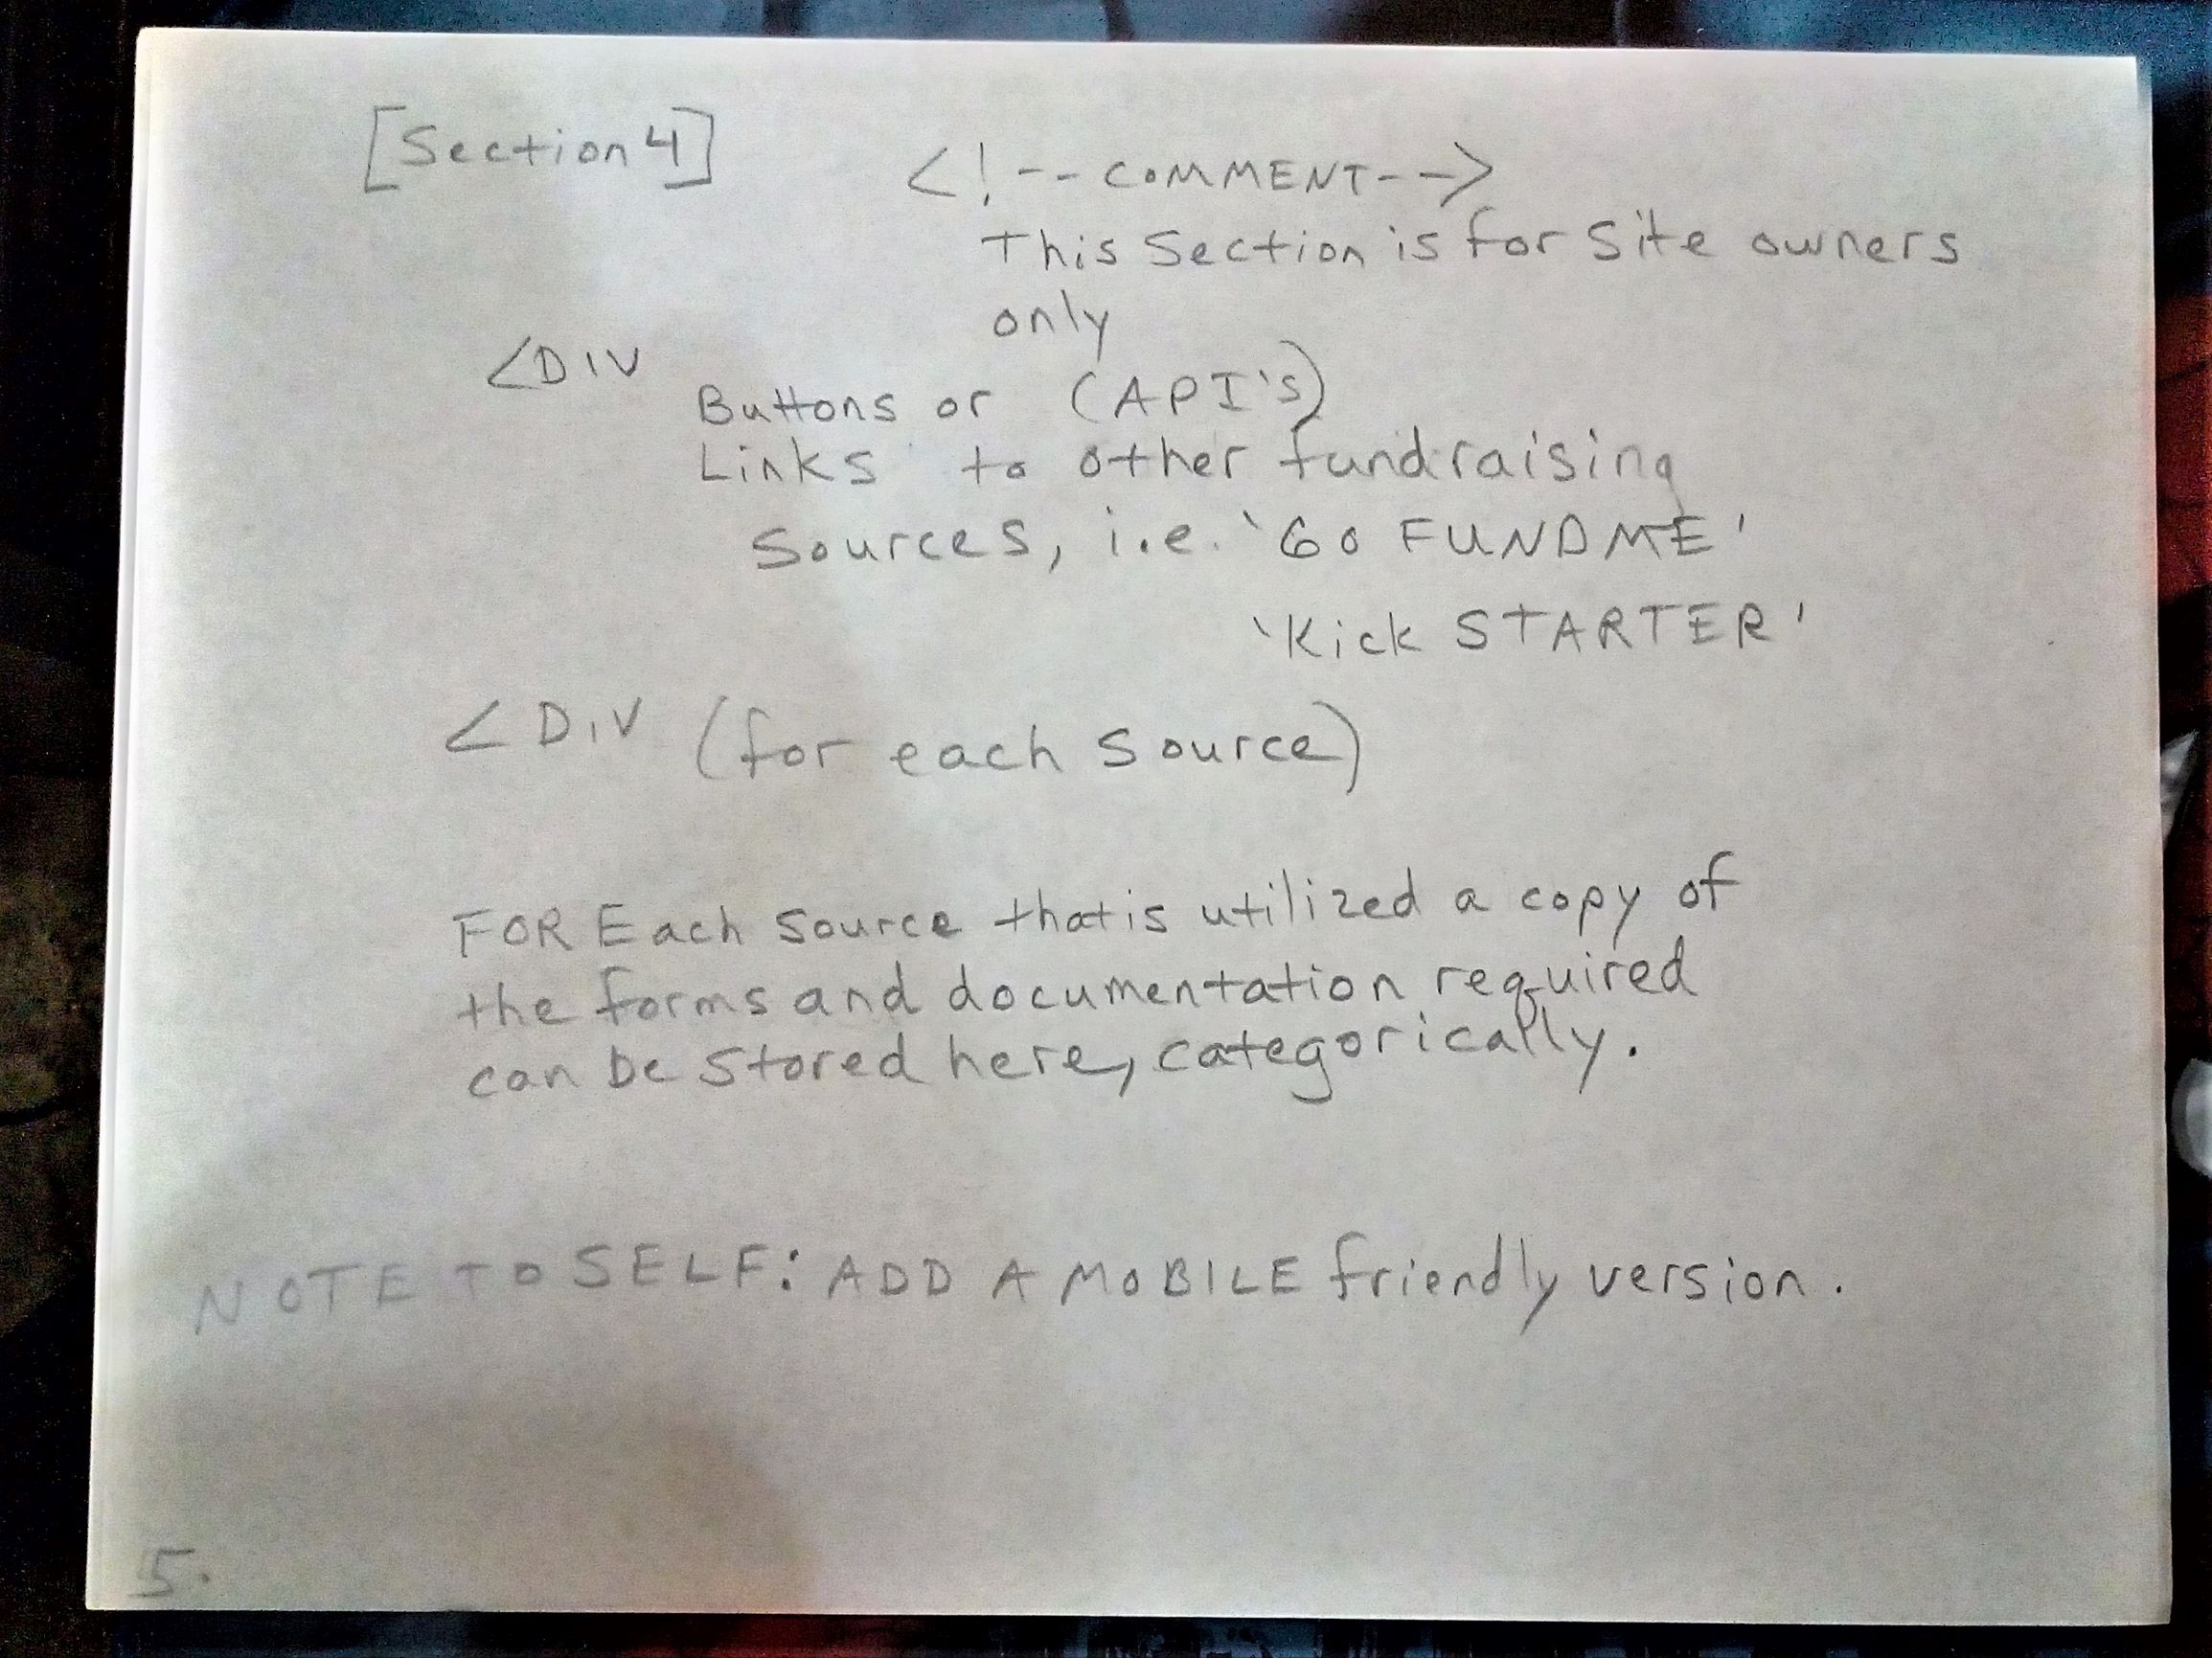 [Section 4]
<!--COMMENT-->
This Section is for Site owners
only
<DIV
Buttons or (API's)
Links to other fundraising
Sources, i.e. 'GO FUNDME'
'Kick STARTER'
<DIV (for each source)
FOR Each source that is utilized a copy of
the forms and documentation required
can be stored here, categorically.
NOTE TO SELF: ADD A MOBILE friendly version.
5.